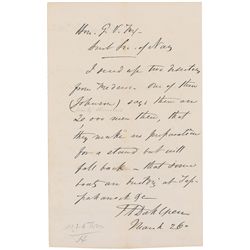 Hon. G. V. Fox
Asst Sec. of Navy
I send up two deserters
from Fredericksburg. One of them
(Johnson) says there are
20.000 men there, that
they make no preparation
for a stand but will
fall back – that some
boats are building at Tap-
pahanock &c
J A Dahlgren
March 26